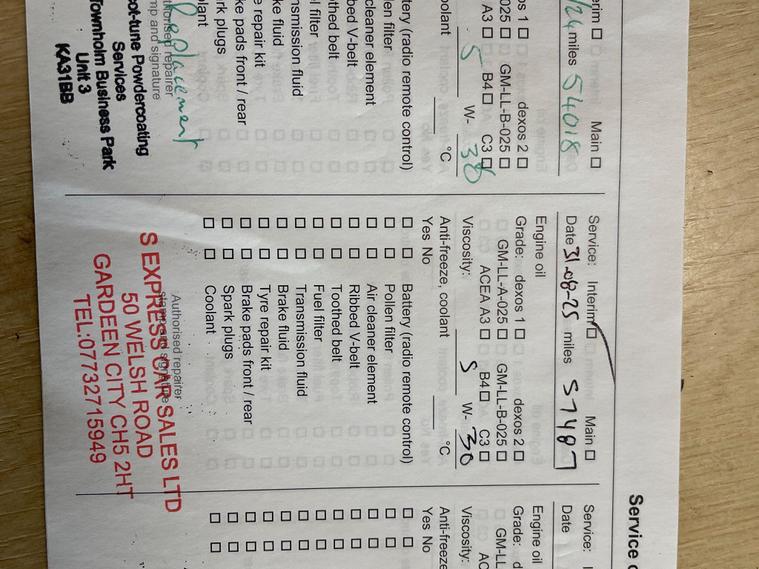 Service
erim ☐ Main ☐
/24 miles 54018
os 1 ☐ dexos 2 ☐
025 ☐ GM-LL-B-025 ☐
A3 ☐ B4 ☐ C3 ☐
5 W- 30
oolant °C
ttery (radio remote control)
len filter
cleaner element
bed V-belt
thed belt
l filter
nsmission fluid
ke fluid
e repair kit
ke pads front / rear
rk plugs
lant
Replacement
thorised repairer
mp and signature
oot-tune Powdercoating
Services
Townholm Business Park
Unit 3
KA31BB
Service: Interim ☐ Main ☐
Date 31-08-25 miles 57487
Engine oil
Grade: dexos 1 ☐ dexos 2 ☐
GM-LL-A-025 ☐ GM-LL-B-025 ☐
ACEA A3 ☐ B4 ☐ C3 ☐
Viscosity: 5 W- 30
Anti-freeze, coolant °C
Yes No
☐ ☐ Battery (radio remote control)
☐ ☐ Pollen filter
☐ ☐ Air cleaner element
☐ ☐ Ribbed V-belt
☐ ☐ Toothed belt
☐ ☐ Fuel filter
☐ ☐ Transmission fluid
☐ ☐ Brake fluid
☐ ☐ Tyre repair kit
☐ ☐ Brake pads front / rear
☐ ☐ Spark plugs
☐ ☐ Coolant
Authorised repairer
S EXPRESS CAR SALES LTD
50 WELSH ROAD
GARDEEN CITY CH5 2HT
TEL:07732715949
Service: I
Date
Engine oil
Grade: d
GM-LL
AC
Viscosity:
Anti-freeze
Yes No